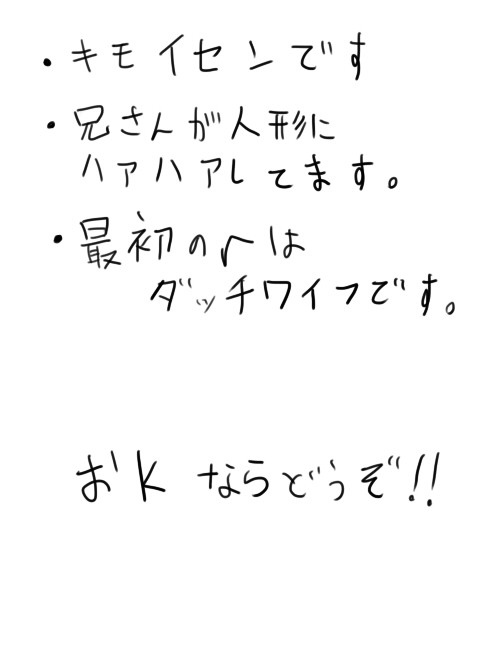 ・キモイセンです
・兄さんが人形に
ハアハアしてます。
・最初のrは
ダッチワイフです。
おK ならどうぞ!!